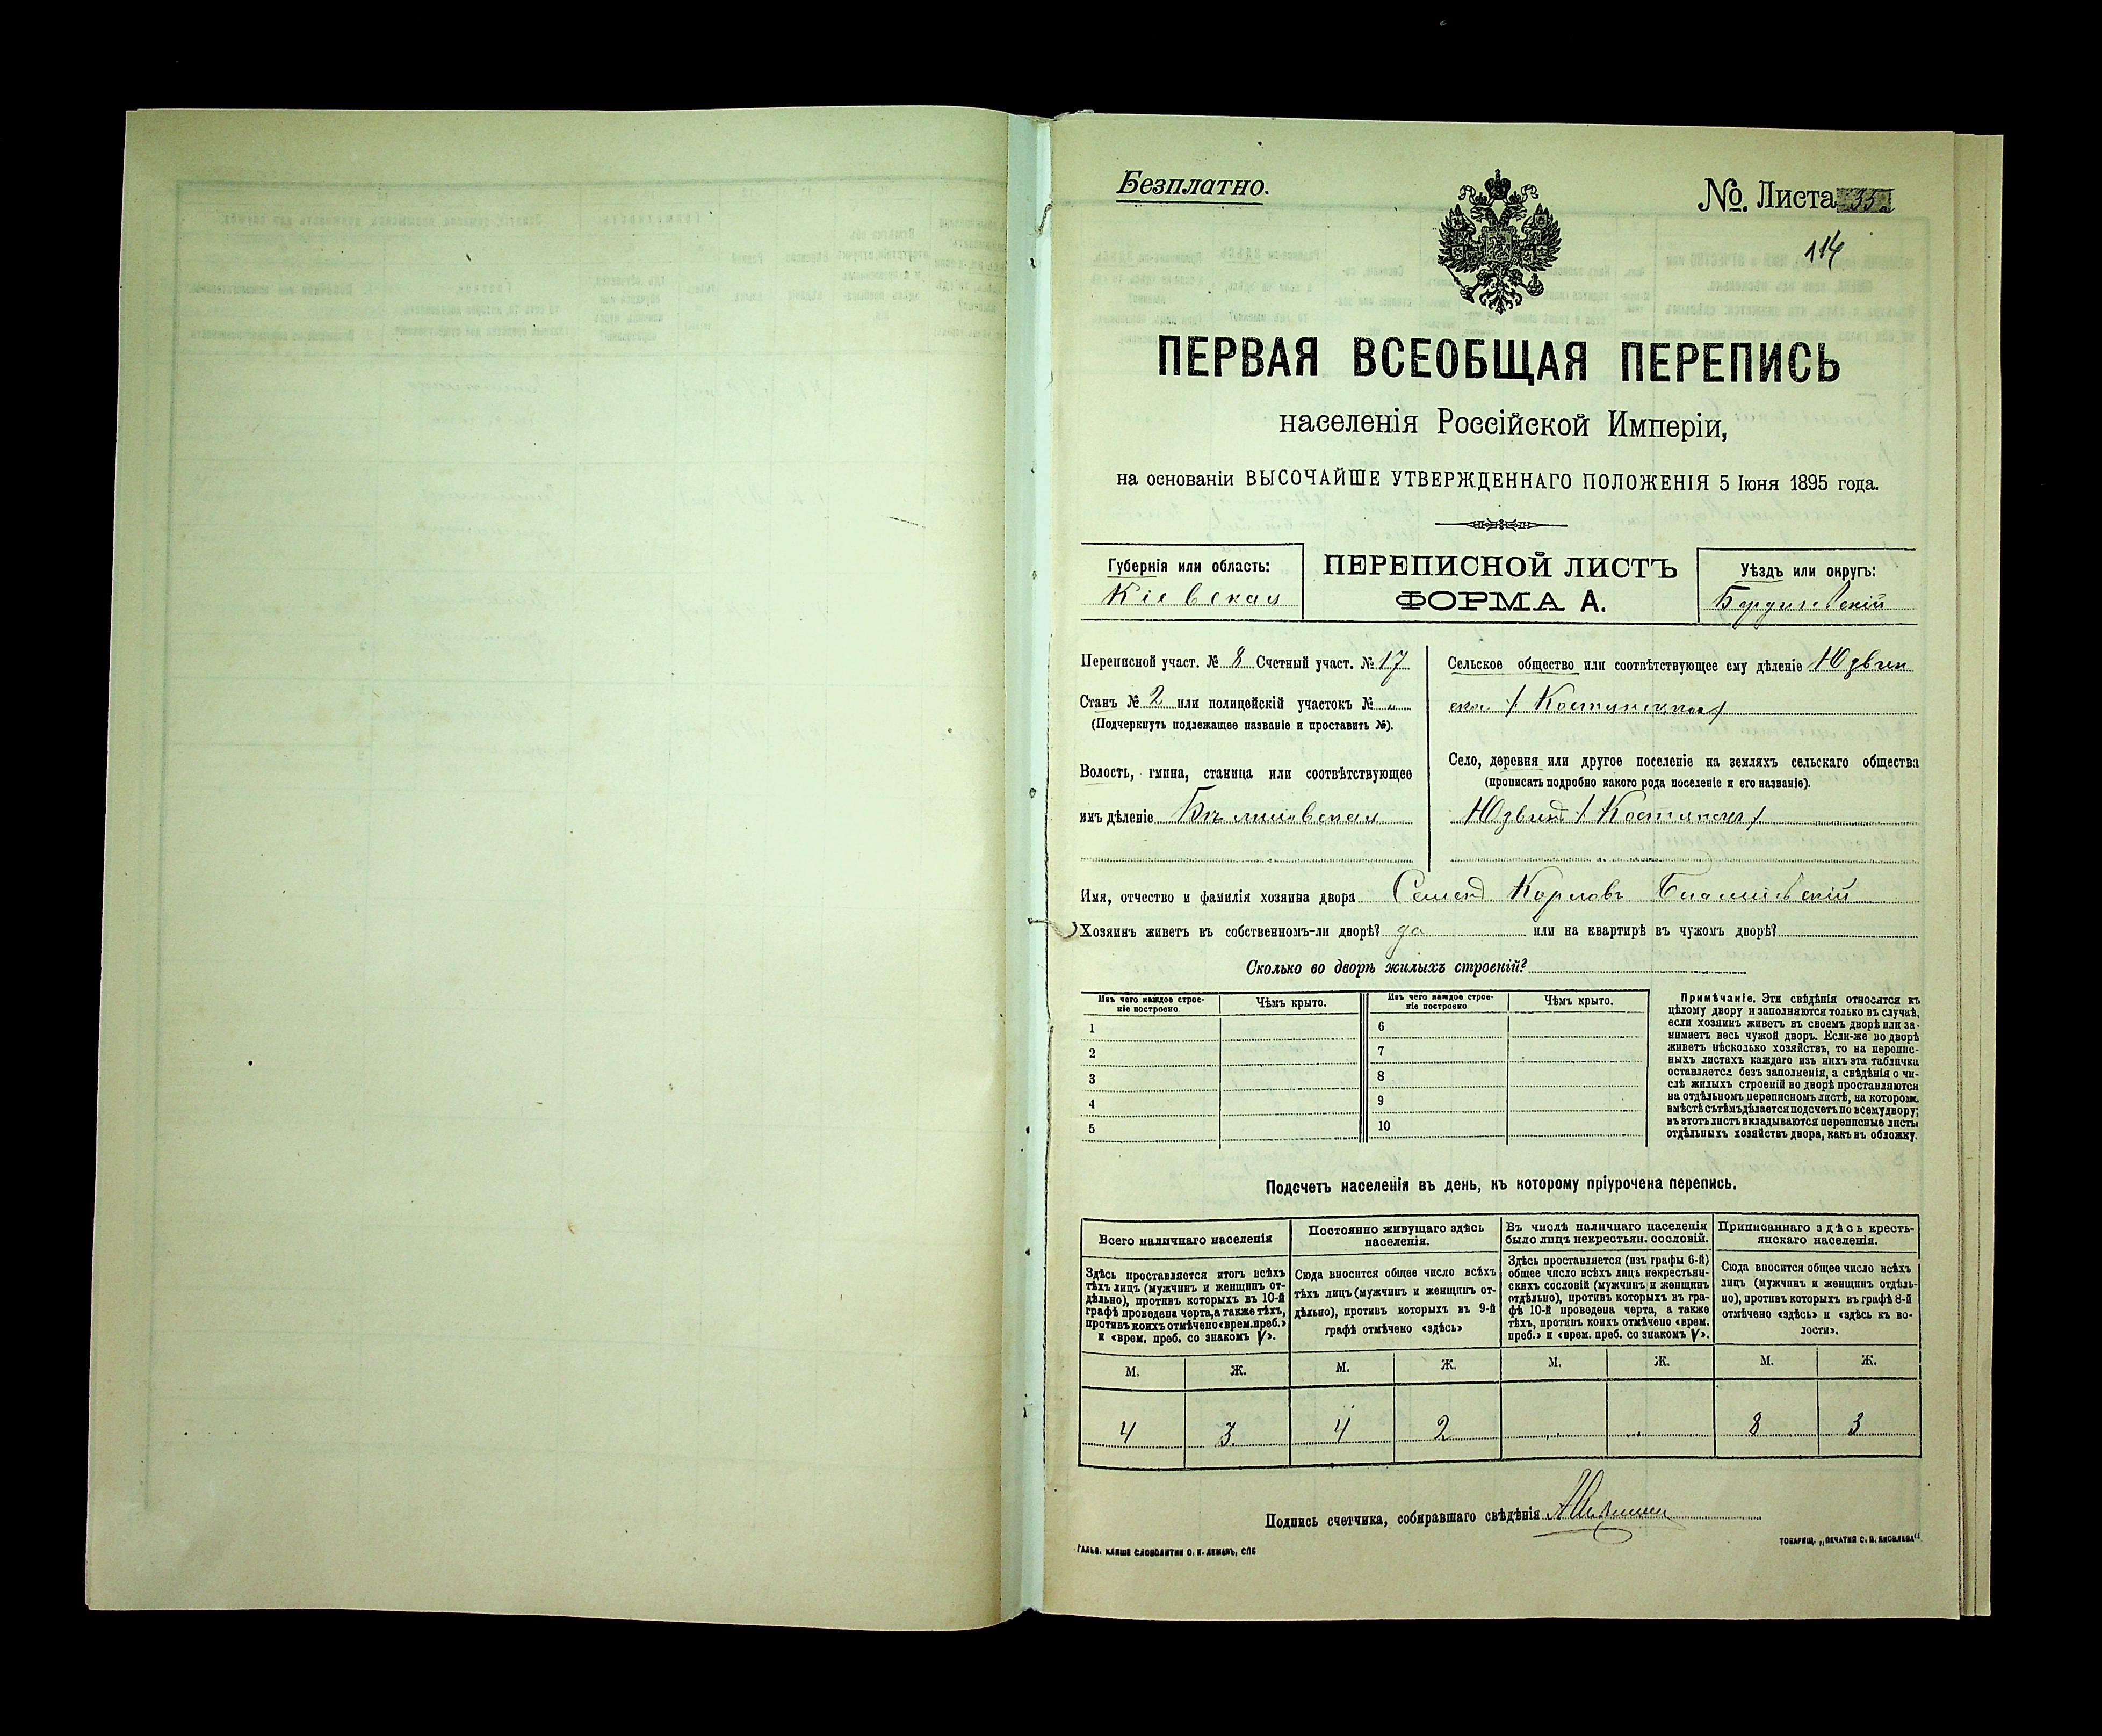 Безплатно.
№ Листа 33
114
ПЕРВАЯ ВСЕОБЩАЯ ПЕРЕПИСЬ
населенія Россійской Имперіи,
на основаніи ВЫСОЧАЙШЕ УТВЕРЖДЕННАГО ПОЛОЖЕНІЯ 5 Іюня 1895 года.
Губернія или область:
Кіевская
ПЕРЕПИСНОЙ ЛИСТЪ
ФОРМА А.
Уѣздъ или округъ:
Бердичевскій
Переписной участ. № 8 Счетный участ. № 17
Станъ № 2 или полицейскій участокъ № „
(Подчеркнуть подлежащее названіе и проставить №).
Волость, гмина, станица или соотвѣтствующее
имъ дѣленіе Бѣлиловская
Сельское общество или соотвѣтствующее ему дѣленіе Юзвин
ское / Костянецкое /
Село, деревня или другое поселеніе на земляхъ сельскаго общества
(прописать подробно какого рода поселеніе и его названіе).
Юзвин /
Имя, отчество и фамилія хозяина двора Семенъ Карловъ
Хозяинъ живетъ въ собственномъ-ли дворѣ? да или на квартирѣ въ чужомъ дворѣ?
Сколько во дворѣ жилыхъ строеній?
Изъ чего каждое строе-
ніе построено
Чѣмъ крыто.
Изъ чего каждое строе-
ніе построено
Чѣмъ крыто.
1 6
2 7
3 8
4 9
5 10
Примѣчаніе. Эти свѣдѣнія относятся къ
цѣлому двору и заполняются только въ случаѣ,
если хозяинъ живетъ въ своемъ дворѣ или за-
нимаетъ весь чужой дворъ. Если-же во дворѣ
живетъ нѣсколько хозяйствъ, то на перепис-
ныхъ листахъ каждаго изъ нихъ эта табличка
оставляется безъ заполненія, а свѣдѣнія о чи-
слѣ жилыхъ строеній во дворѣ проставляются
на отдѣльномъ переписномъ листѣ, на которомъ
вмѣстѣ съ тѣмъ дѣлается подсчетъ по всему двору;
въ этотъ листъ вкладываются переписные листы
отдѣльныхъ хозяйствъ двора, какъ въ обложку.
Подсчетъ населенія въ день, къ которому пріурочена перепись.
Всего наличнаго населенія
Здѣсь проставляется итогъ всѣхъ
тѣхъ лицъ (мужчинъ и женщинъ от-
дѣльно), противъ которыхъ въ 10-й
графѣ проведена черта, а также тѣхъ,
противъ коихъ отмѣчено «врем. преб.»
и «врем. преб. со знакомъ V».
Постоянно живущаго здѣсь
населенія.
Сюда вносится общее число всѣхъ
тѣхъ лицъ (мужчинъ и женщинъ от-
дѣльно), противъ которыхъ въ 9-й
графѣ отмѣчено «здѣсь»
Въ числѣ наличнаго населенія
было лицъ некрестьян. сословій.
Здѣсь проставляется (изъ графы 6-й)
общее число всѣхъ лицъ некрестьян-
скихъ сословій (мужчинъ и женщинъ
отдѣльно), противъ которыхъ въ гра-
фѣ 10-й проведена черта, а также
тѣхъ, противъ коихъ отмѣчено «врем.
преб.» и «врем. преб. со знакомъ V».
Приписаннаго здѣсь кресть-
янскаго населенія.
Сюда вносится общее число всѣхъ
лицъ (мужчинъ и женщинъ отдѣль-
но), противъ которыхъ въ графѣ 8-й
отмѣчено «здѣсь» и «здѣсь къ во-
лости».
М. Ж. М. Ж. М. Ж. М. Ж.
4 3 4 2 8 3
Подпись счетчика, собиравшаго свѣдѣнія
ГАЛЬВ. КЛИШЕ СЛОВОЛИТНИ О. И. ЛЕМАНЪ, СПБ
ТОВАРИЩ. „ПЕЧАТНЯ С. П. ЯКОВЛЕВА“